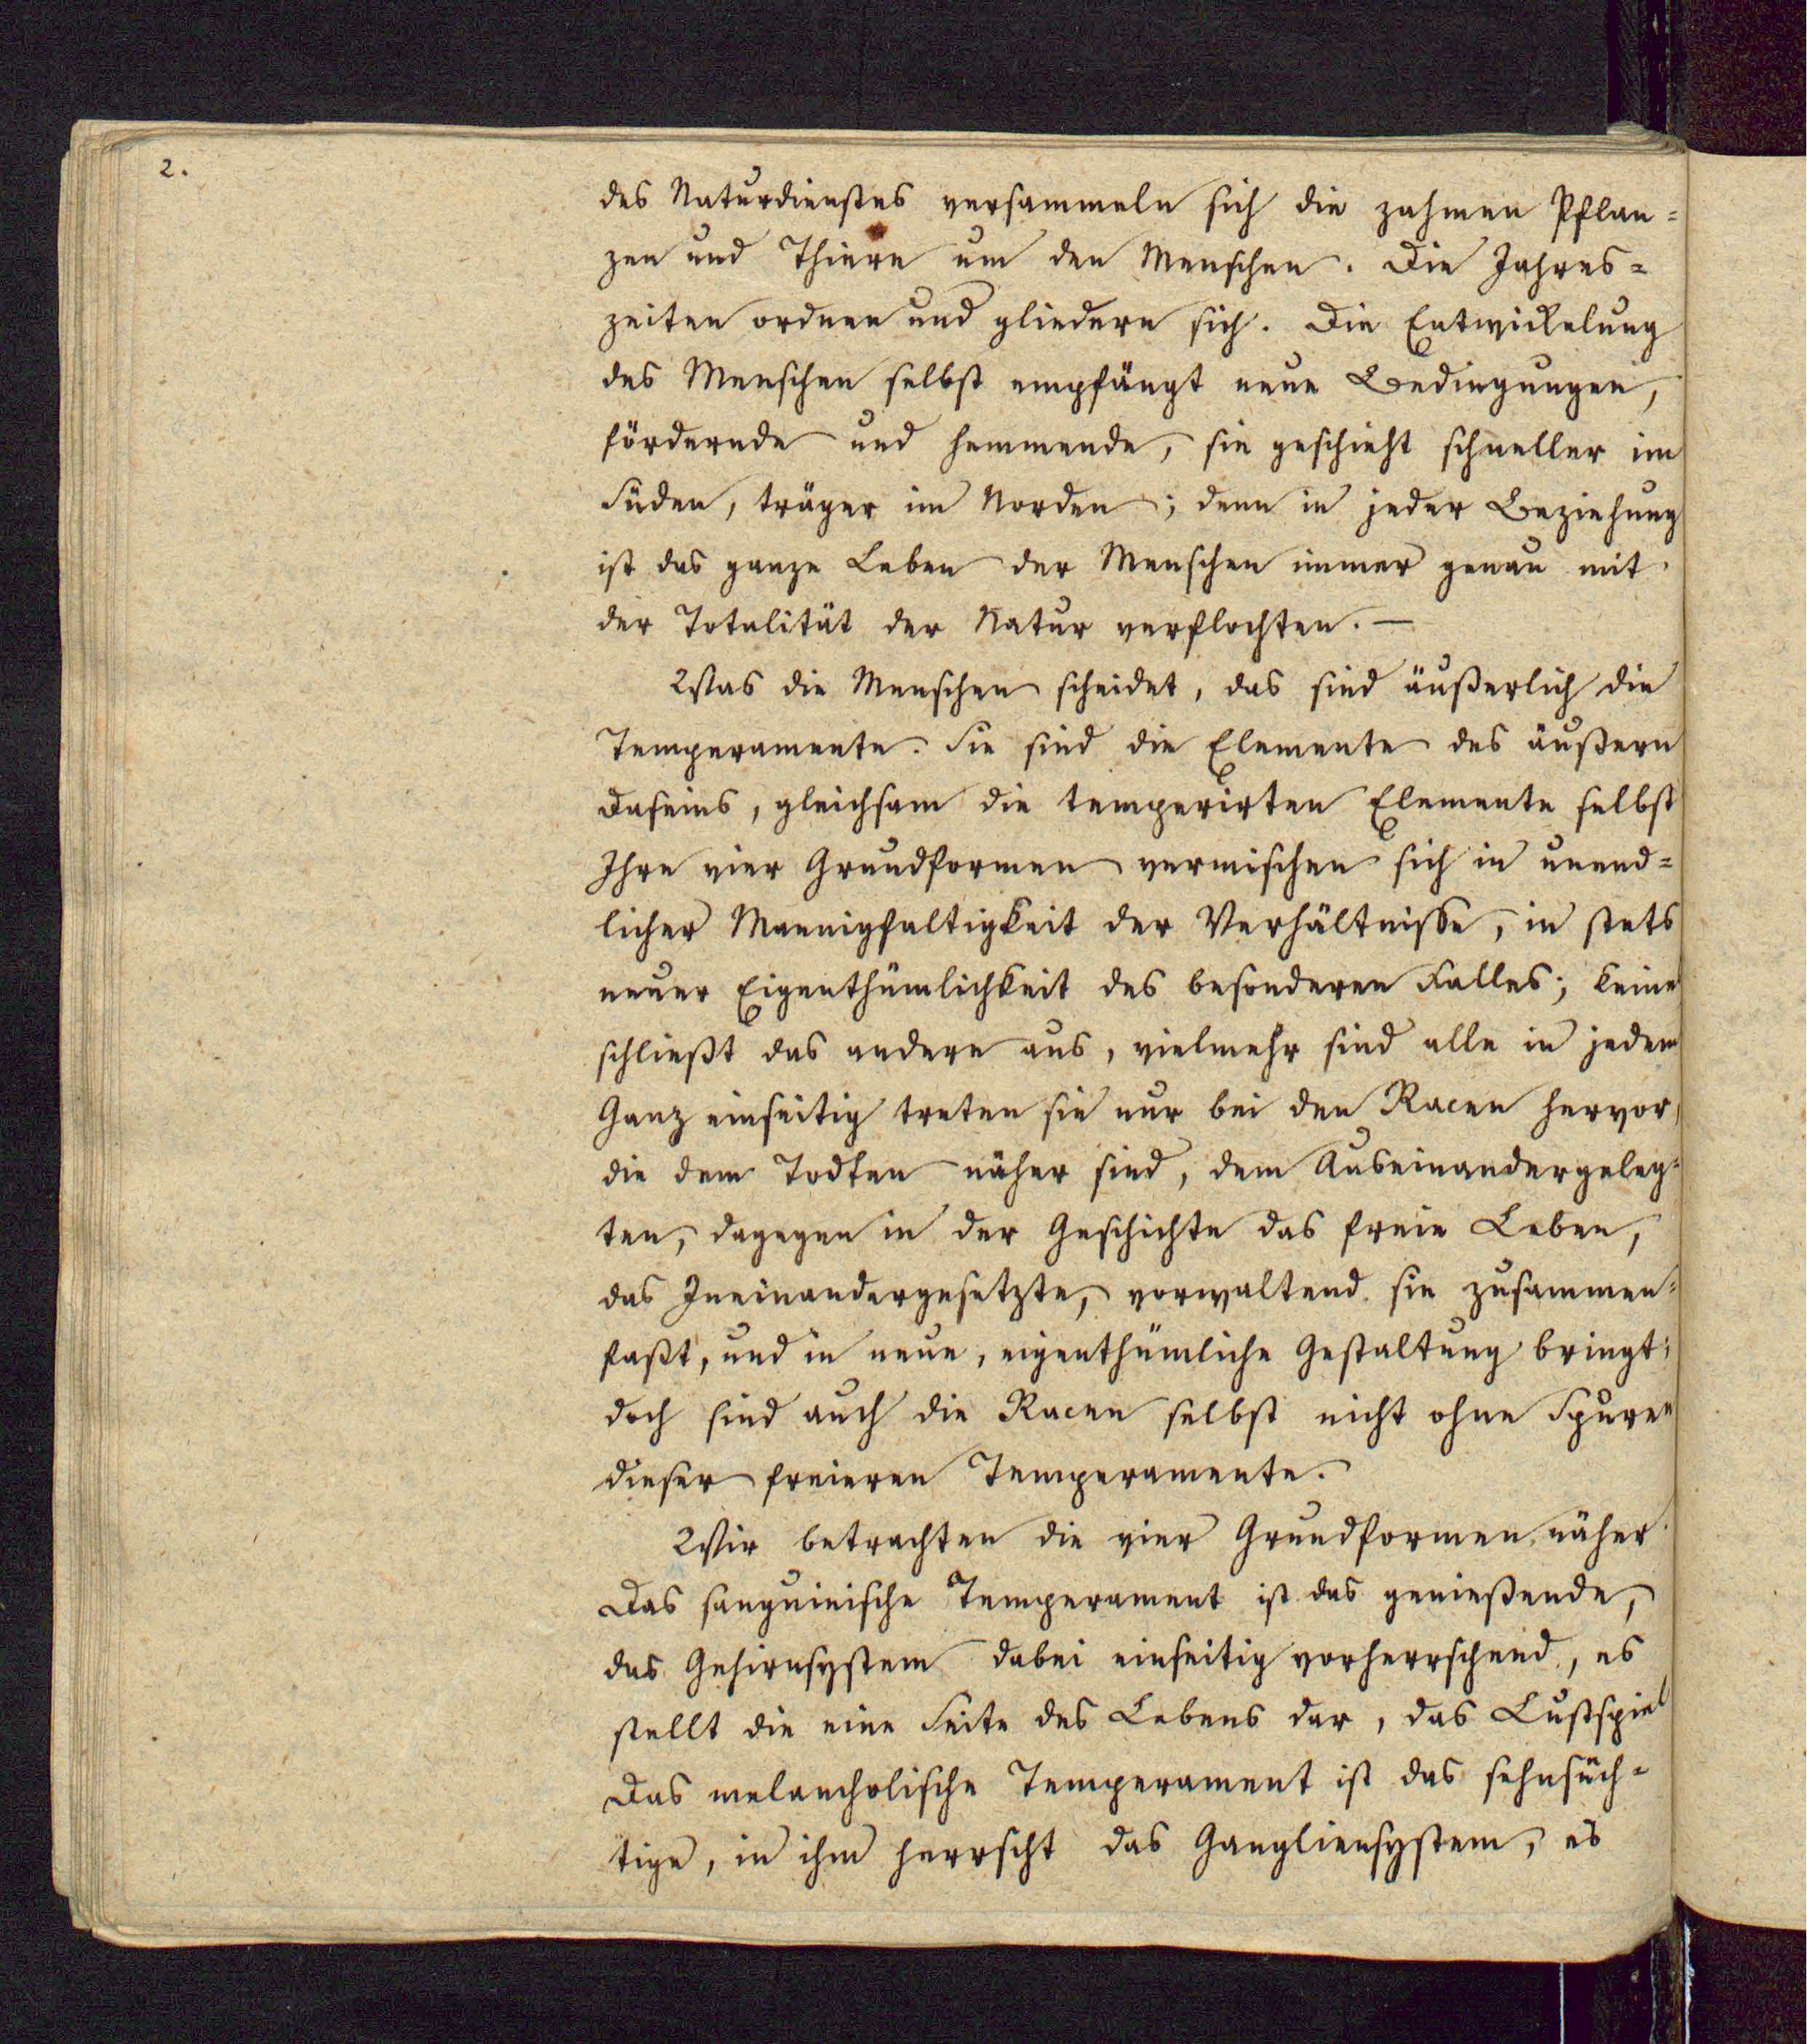 2.
des Naturdienstes versammeln sich die zahmen Pflan=
zen und Thiere um den Menschen. Die Jahres=
zeiten ordnen und gliedern sich. Die Entwickelung
des Menschen selbst empfängt neue Bedingungen,
fördernde und hemmende, sie geschieht schneller im
Süden, träger im Norden; denn in jeder Beziehung
ist das ganze Leben der Menschen immer genau mit
der Totalität der Natur verflochten. —
Was die Menschen scheidet, das sind äußerlich die
Temperamente. Sie sind die Elemente des äußern
Daseins, gleichsam die temperirten Elemente selbst
Ihre vier Grundformen vermischen sich in unend=
licher Mannigfaltigkeit der Verhältnisse, in stets
neuer Eigenthümlichkeit des besonderen Falles; keine
schließt das andere aus, vielmehr sind alle in jedem
Ganz einseitig treten sie nur bei den Racen hervor,
die dem Todten näher sind, dem Auseinandergeleg=
ten, dagegen in der Geschichte das freie Leben,
das Ineinandergesetzte, vorwaltend sie zusammen=
faßt, und in neue, eigenthümliche Gestaltung bringt;
doch sind auch die Racen selbst nicht ohne Spuren
dieser freieren Temperamente.
Wir betrachten die vier Grundformen näher.
Das sanguinische Temperament ist das genießende,
das Gehirnsystem dabei einseitig vorherrschend, es
stellt die eine Seite des Lebens dar, das Lustspiel
Das melancholische Temperament ist das sehnsüch=
tige, in ihm herrscht das Gangliensystem, es